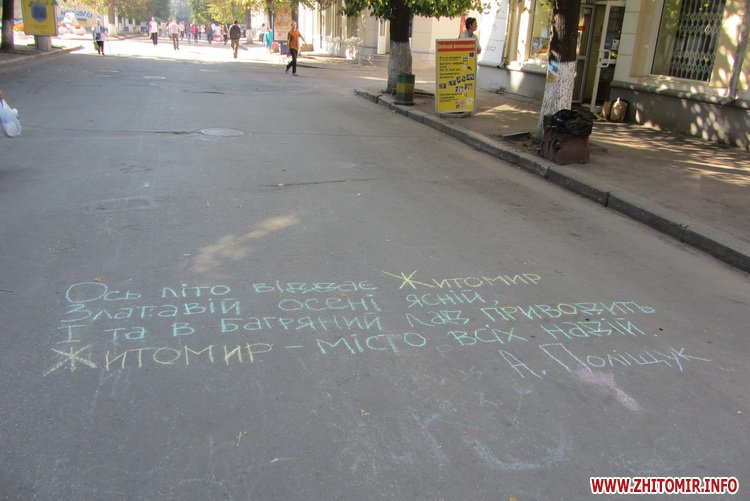 Ось літо віддає Житомир
Златавій осені ясній,
І та в багряний лав приводить
Житомир – місто всіх надій.
А. Поліщук
WWW.ZHITOMIR.INFO